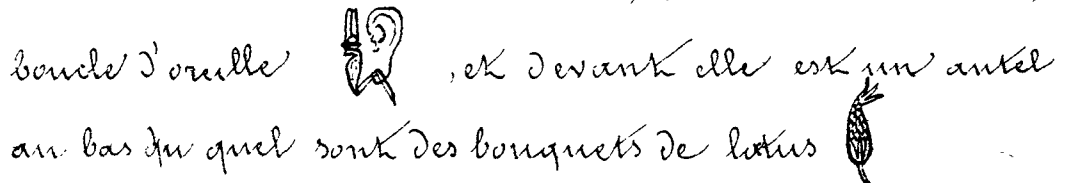 boucle d'oreille , et devant elle est un autel
au bas du quel sont des bouquets de lotus